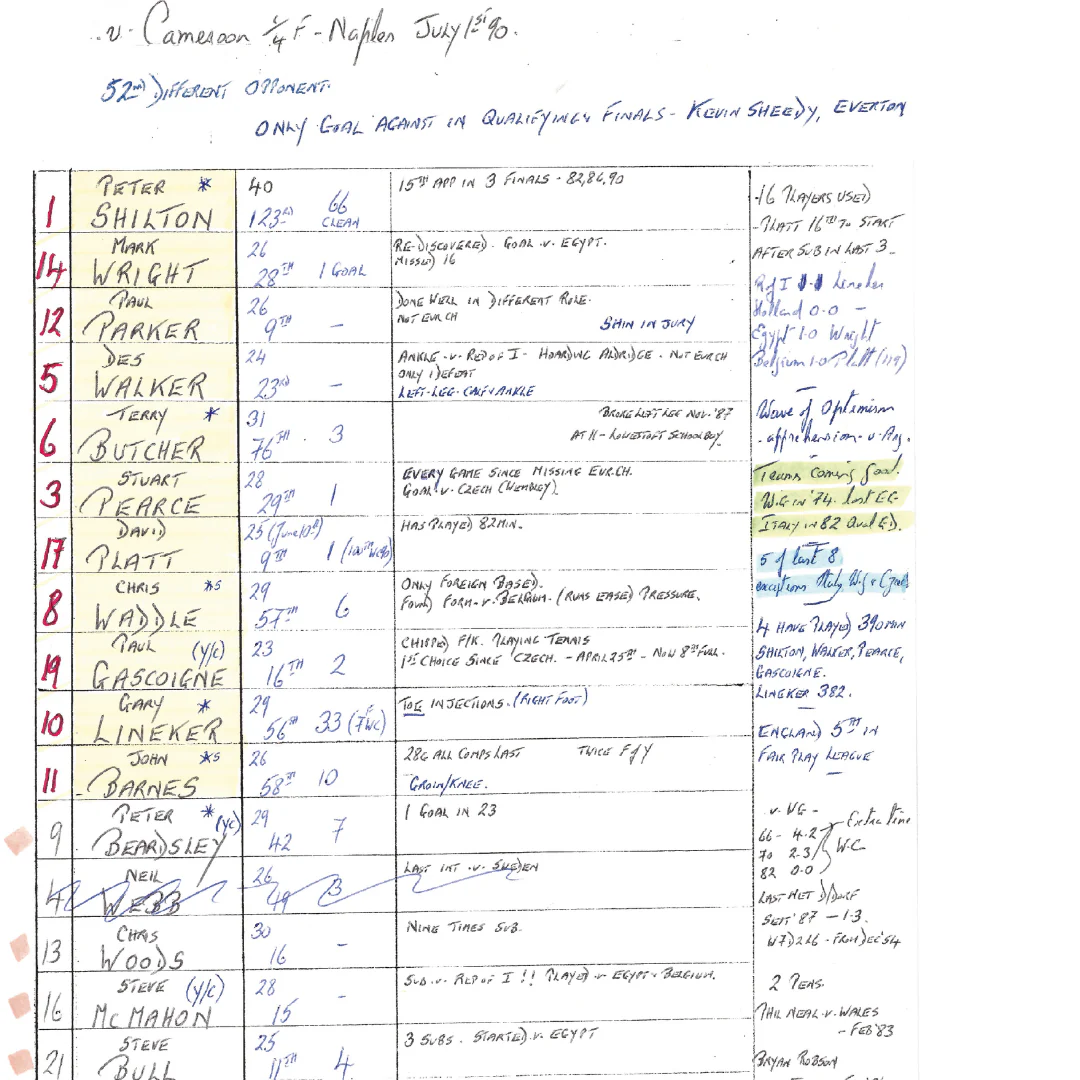 v. Cameroon 1/4 F - Naples July 1st 90.
52nd DIFFERENT OPPONENT.
ONLY GOAL AGAINST IN QUALIFYING & FINALS - KEVIN SHEEDY, EVERTON
1 PETER * SHILTON
40
123rd 66 CLEAN
15TH APP IN 3 FINALS - 82,86,90
14 MARK WRIGHT
26
28TH 1 GOAL
RE-DISCOVERED. GOAL .v. EGYPT.
MISSED 16
12 PAUL PARKER
26
9TH -
DONE WELL IN DIFFERENT ROLE.
NOT EUR CH
SHIN INJURY
5 DES WALKER
24
23rd -
ANKLE .v. REP OF I - HOARDING ALDRIDGE. NOT EUR CH
ONLY 1 DEFEAT
LEFT-LEG - CALF & ANKLE
6 TERRY * BUTCHER
31
76TH . 3
BROKE LEFT LEG NOV. '87
AT H - LOWESTOFT SCHOOLBOY.
3 STUART PEARCE
28
29TH 1
EVERY GAME SINCE MISSING EUR.CH.
GOAL .v. CZECH (WEMBLEY).
17 DAVID PLATT
25 (June 10th)
9TH 1 (100TH WC 90)
HAS PLAYED 82 MIN.
8 CHRIS *S WADDLE
29
57TH 6
ONLY FOREIGN BASED.
FOUND FORM .v. BELGIUM. (RUNS EASED) PRESSURE.
19 PAUL (Y/C) GASCOIGNE
23
16TH 2
CHIPPED F/K. PLAYING TENNIS
1ST CHOICE SINCE CZECH. - APRIL 25TH - NOW 8TH FULL.
10 GARY * LINEKER
29
56TH 33 (7F WC)
TOE INJECTIONS. (RIGHT FOOT)
11 JOHN *S BARNES
26
58TH 10
28G ALL COMPS LAST TWICE F of Y
GROIN/KNEE.
9 PETER * (YC) BEARDSLEY
29
42 7
1 GOAL IN 23
4 NEIL WEBB
26
49 3
LAST INT .v. SWEDEN
13 CHRIS WOODS
30
16 -
NINE TIMES SUB.
16 STEVE (Y/C) McMAHON
28
15 -
SUB .v. REP OF I !! PLAYED v EGYPT & BELGIUM.
21 STEVE BULL
25
11TH 4
3 SUBS. STARTED .v. EGYPT
-16 PLAYERS USED
-PLATT 16TH TO START
AFTER SUB IN LAST 3.
R of I 1.1 Lineker
Holland 0.0 -
Egypt 1.0 Wright
Belgium 1.0 Platt (119)
Wave of Optimism
- apprehension - v. Arg.
Teams coming good.
W.G in '74. lost EG
ITALY IN 82 Qual E).
5 of last 8
exceptions Italy, W.G &
4 HAVE PLAYED 390 MIN
SHILTON, WALKER, PEARCE,
GASCOIGNE.
LINEKER 382.
ENGLAND 5TH IN
FAIR PLAY LEAGUE
.v. WG -
66 - 4.2 Extra time
70 2.3 W.C
82 0.0
LAST MET D/DORF
SEPT '87 - 1-3.
W7 D2 L6 - FROM DEC 54
2 PENS.
PHIL NEAL .v. WALES
- FEB '83
BRYAN ROBSON